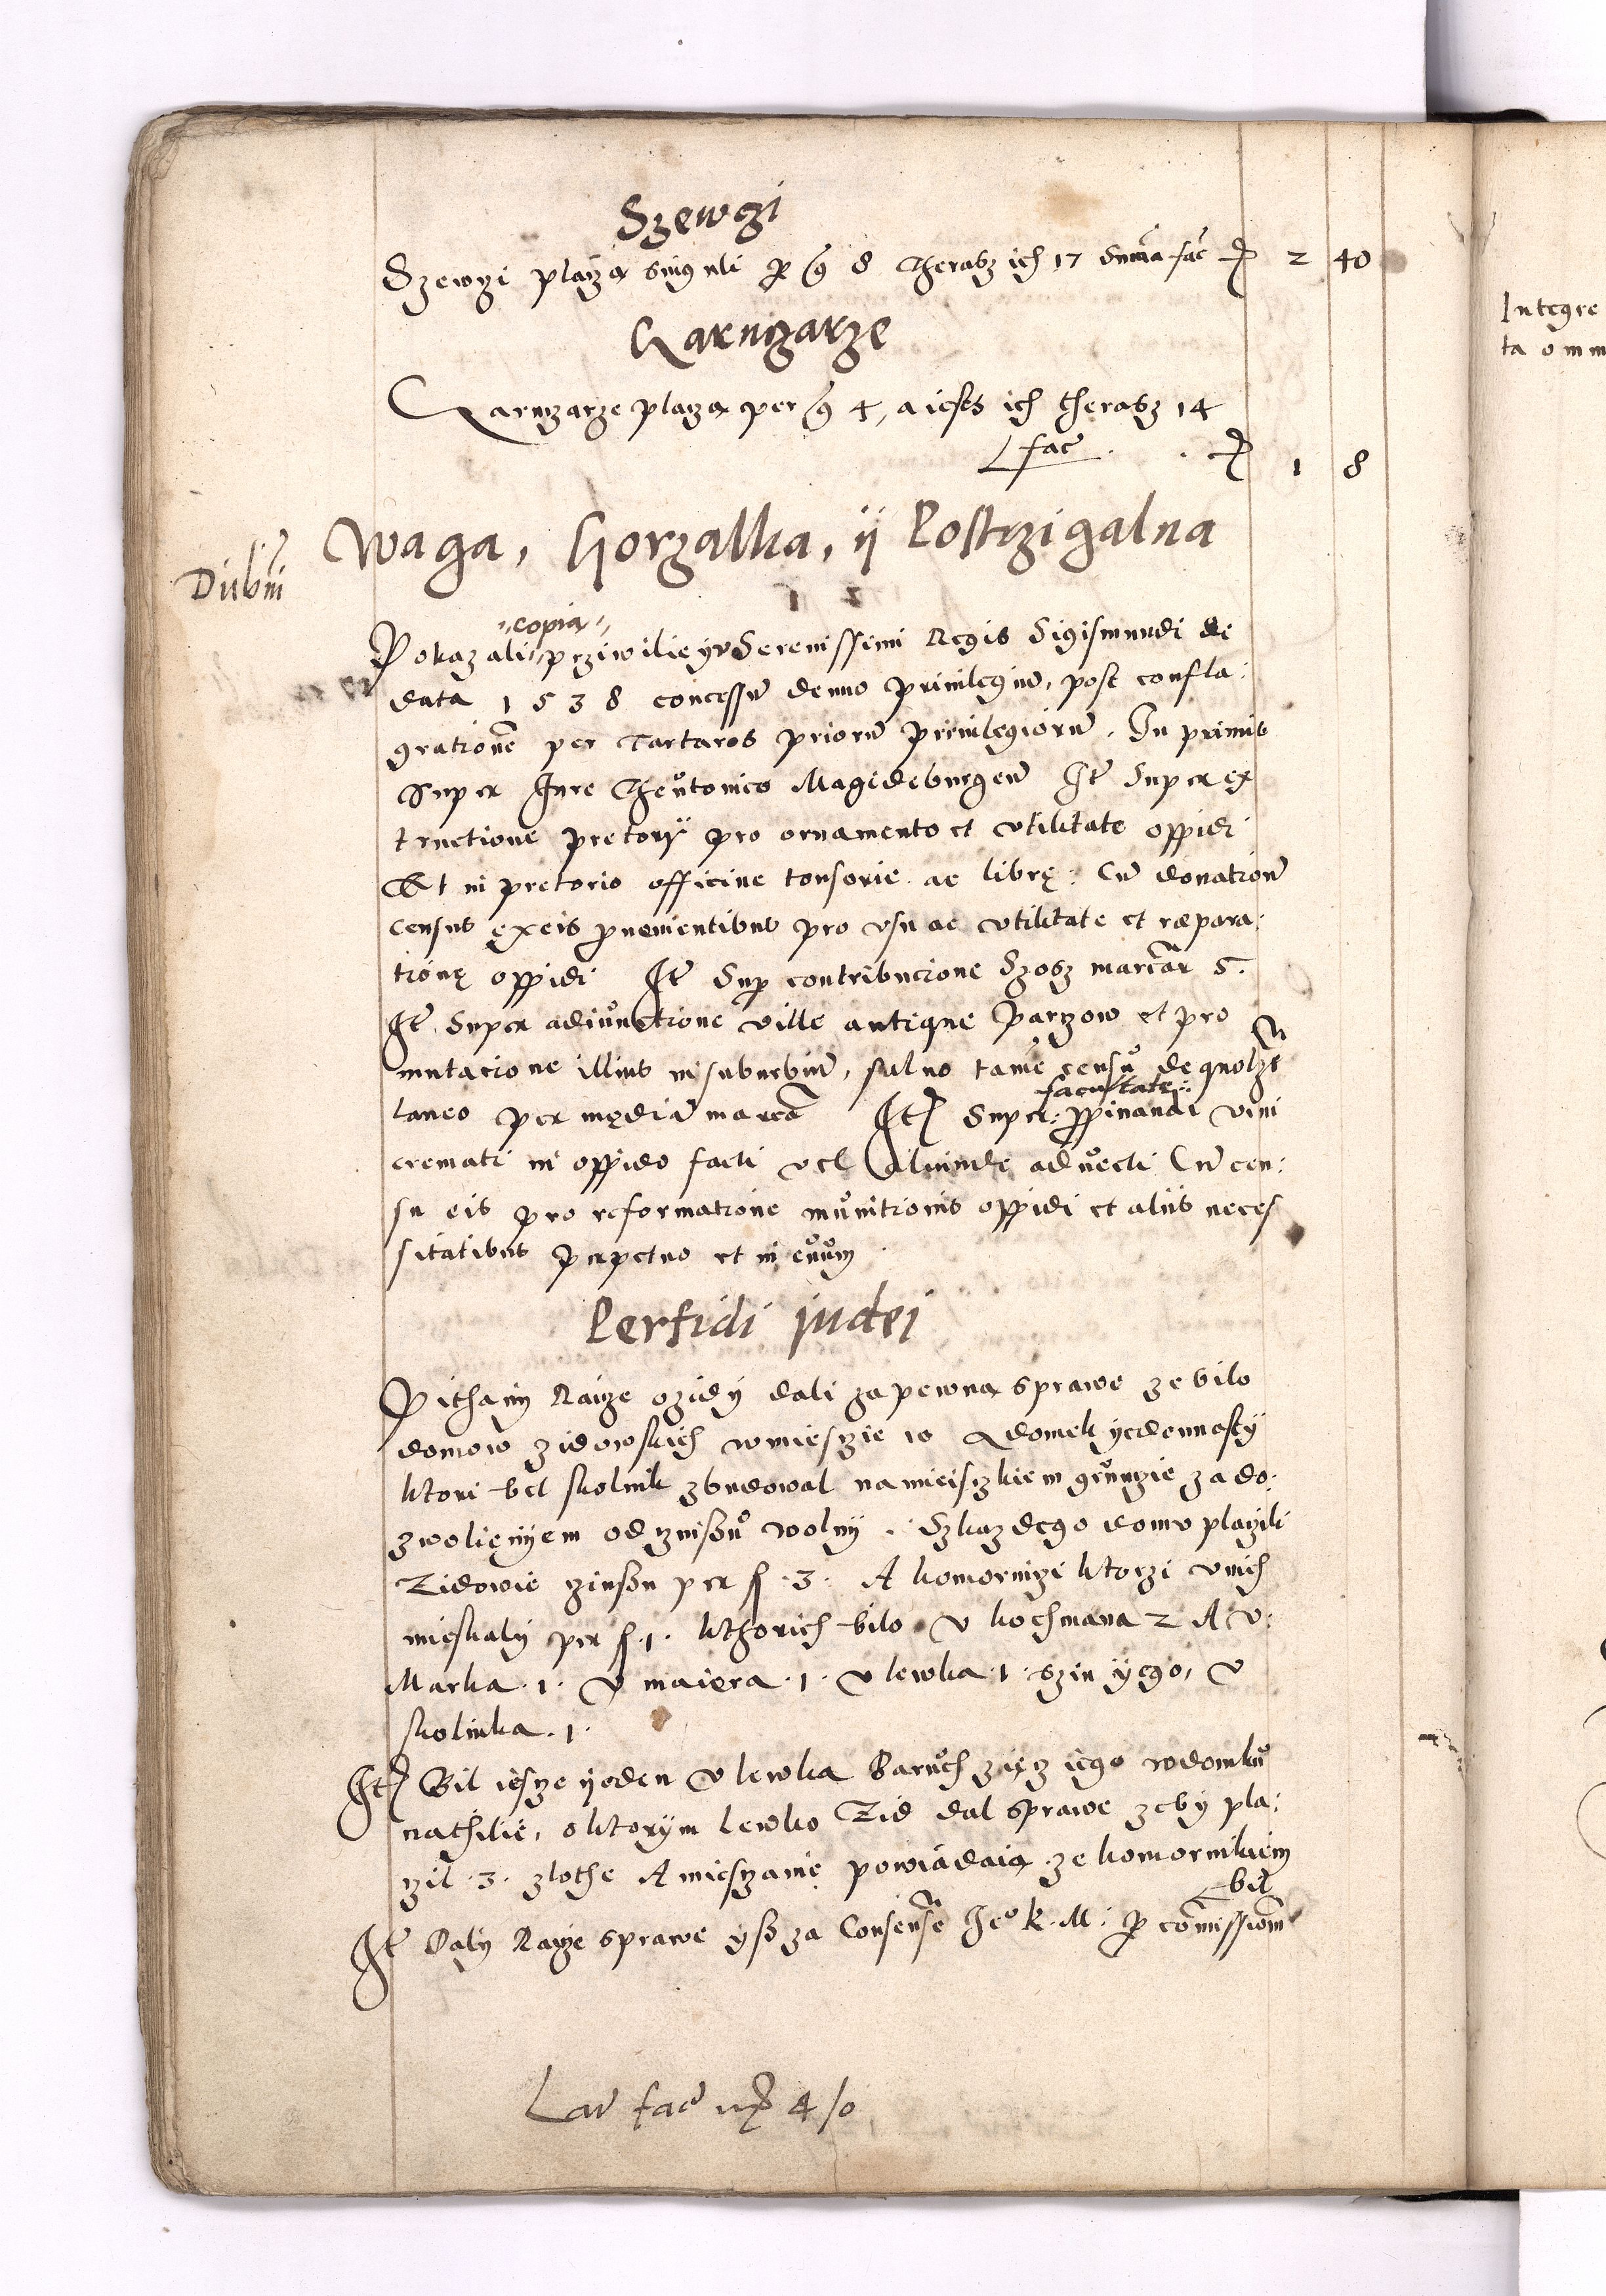 Szewczi
Szewczi placzą singuli per g 8 Therasz ich 17 Summa fac 2 40
Garnczarze
Garnczarze placzą per g 4, a iesth ich therasz 14
fac 1 8
Waga, Gorzalka, ij Postrzigalna
Dubni
copia
Pokazali prziwilieyu Serenissimi Regis Sigismundi de
data 1538 concessum denuo priuilegium, post confla:
grationem per Tartaros priorum priuilegiorum. In primis
Super Jure Theutonico Magdeburgen Item Super ex
tructione pretorij pro ornamento et vtilitate oppidi
Et in pretorio officine tonsorie ac librę. Cum donatione
census ex eis prouenientibus pro vsu ac vtilitate et repara:
tionę oppidi Item Super contribucione Szosz marcar 5.
Item Super adiunctione ville antique Parczow et pro
mutacione illius in suburbium, saluo tamen censu de quolzt
facultate
laneo per mędiam marcam Item Super propinandi vini
cremati in oppido facti vel aliunde aduecti Cum cen:
su eis pro reformatione munitionis oppidi et aliis neces
sitatibus perpetuo et in euum
Perfidi judei
Pithany Raicze ozidy dali za pewną sprawe ze bilo
domow zidowskich wmiesczie 10 A domek yedennasty
ktori bel skolnik zbudowal na mieisczkiem grunczie za do:
zwolięnyem od czinszu wolny. Szkazdego domu placzili
Zidowie czinszu per f 3. A komorniczi ktorzi v nich
mieskaly per f 1. kthorich bilo v kochmana 2 A v:
Marka 1. V maiera 1. v lewka 1 szin yego, v
skolnika 1.
Item Bil iescze ijeden v lewka Baruch zięcz iego wdomku
nathilie, o ktorym lewko Zid dal sprawe zeby pla:
czil 3 zlothe A miesczanie powiadaią ze komornikiem
bil
Item Daly Raicze sprawe ysz za Consensem Jeo K. M: per commissionem
Lat fac 4/0